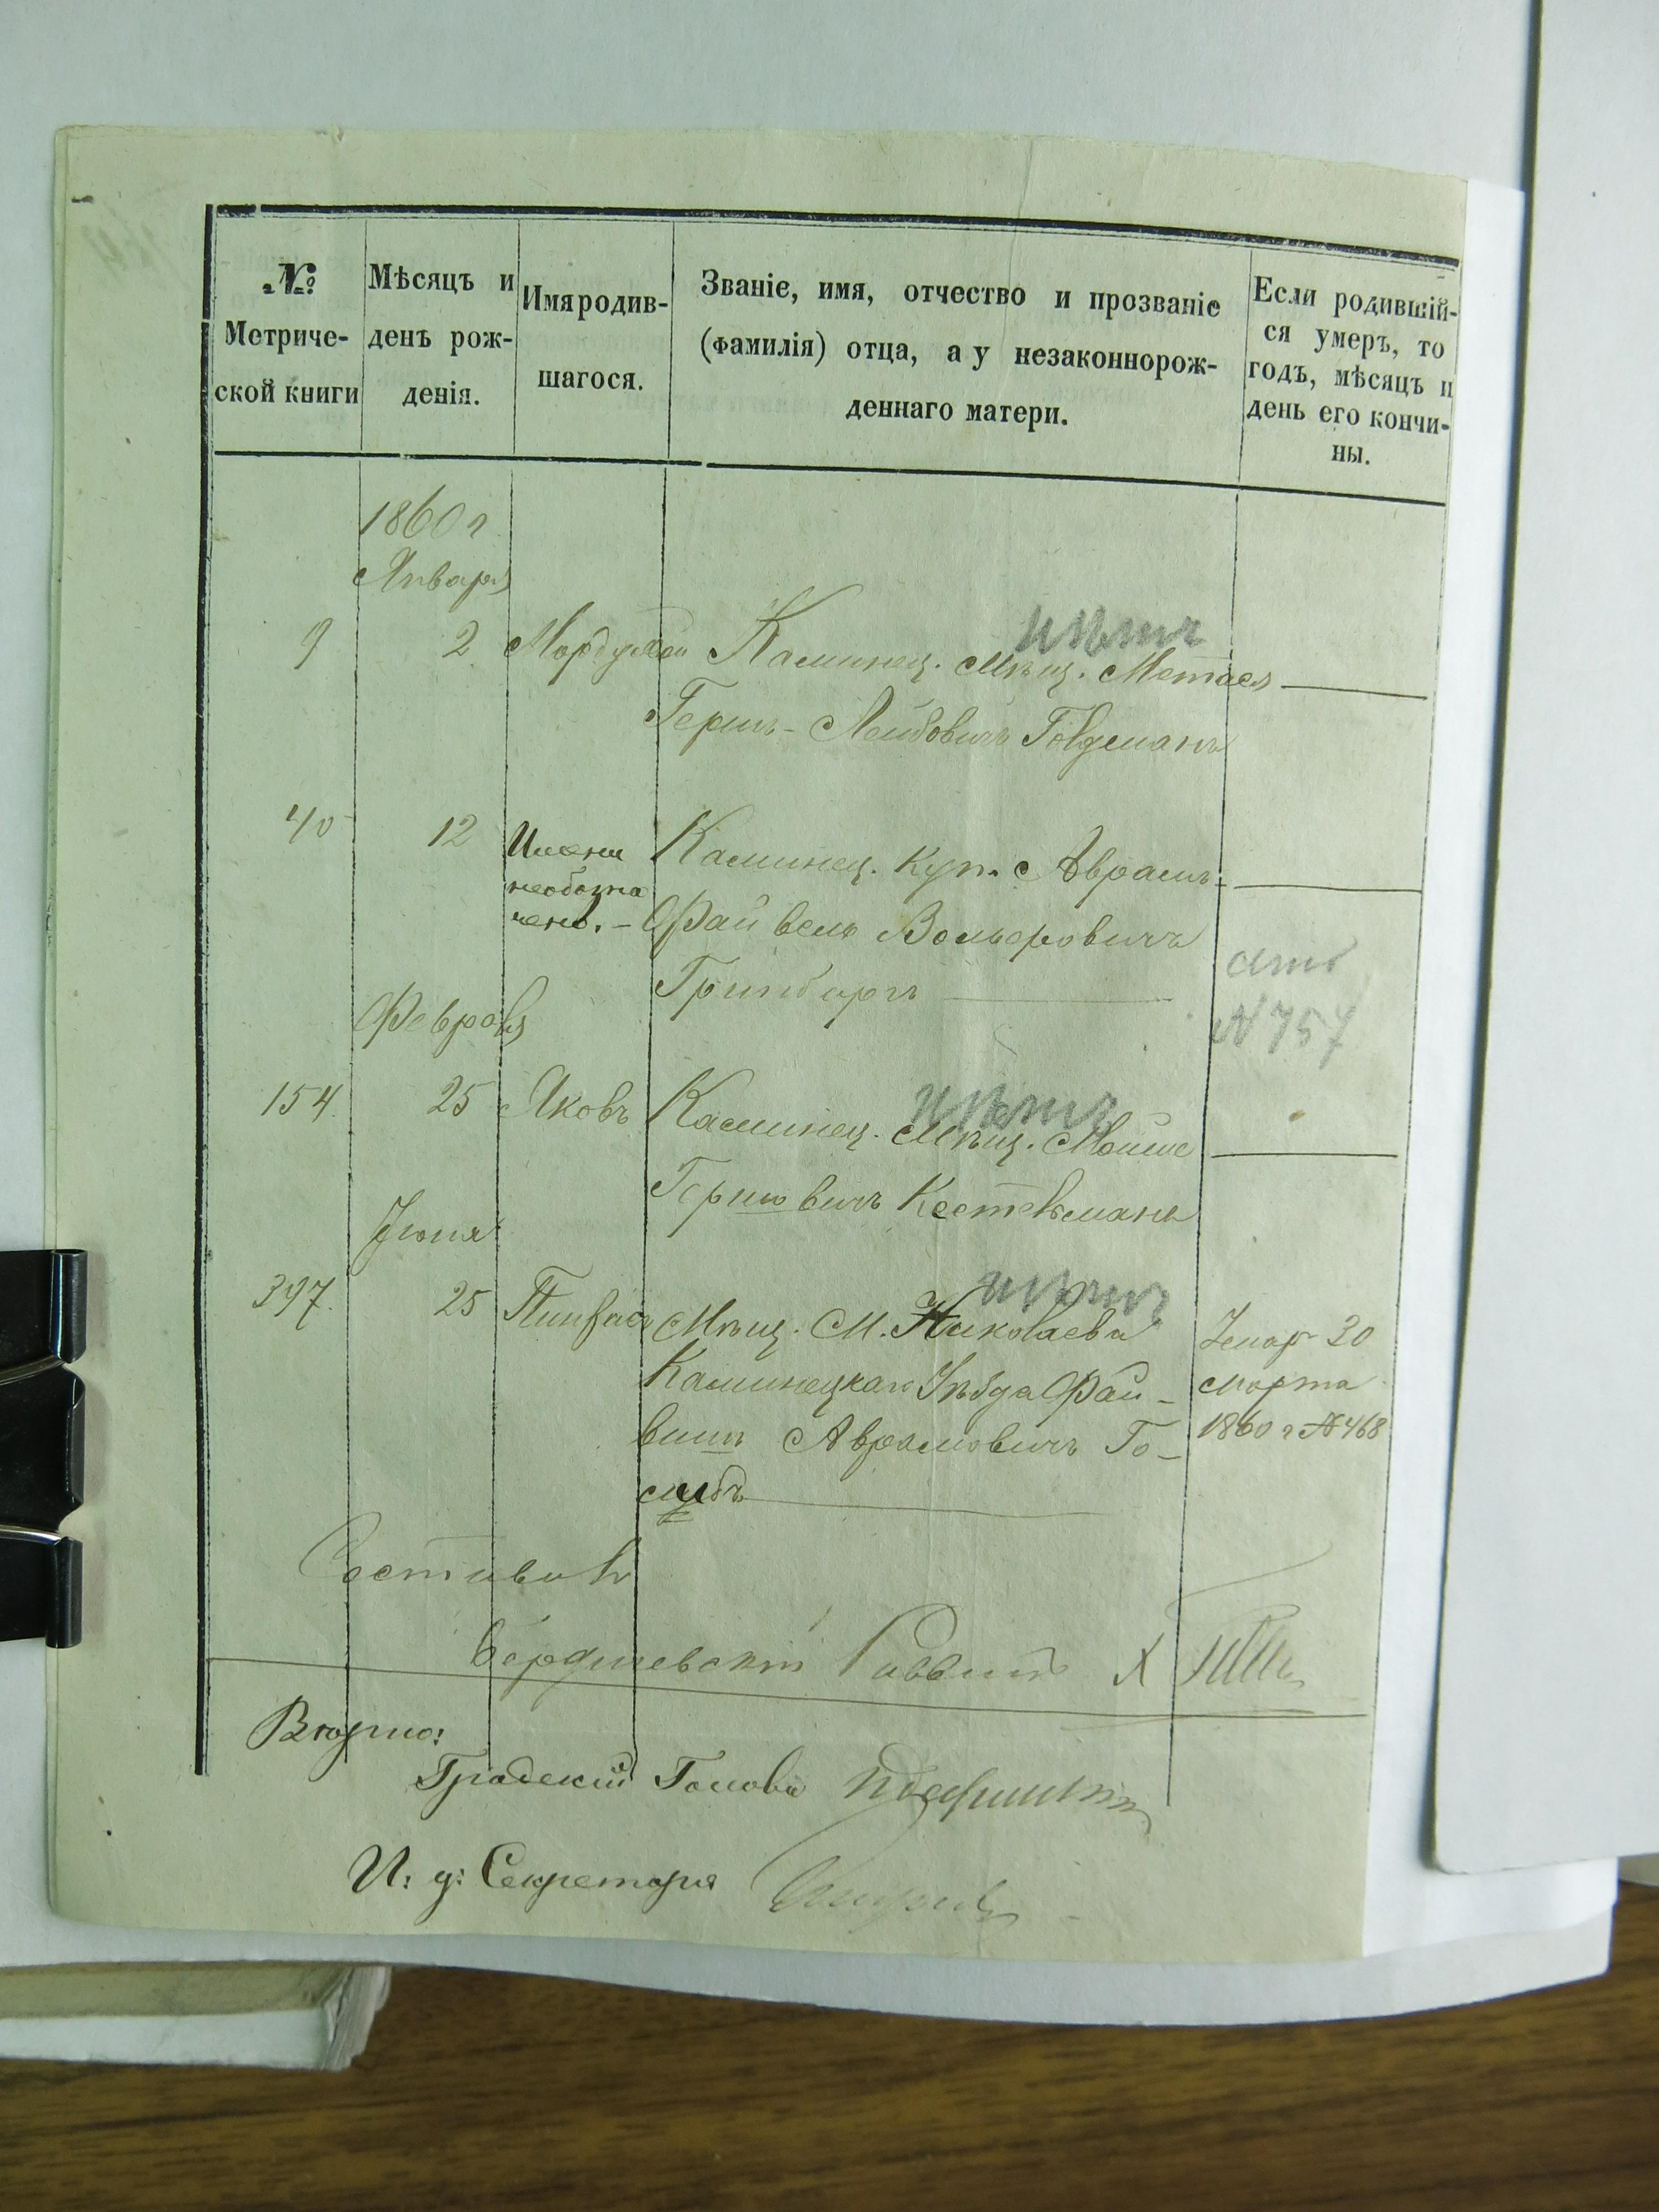 № Метриче-ской книги
Мѣсяцъ и день рож-денія.
Имя родив-шагося.
Званіе, имя, отчество и прозваніе
(фамилія) отца, а у незаконнорож-
деннаго матери.
Если родившій-
ся умеръ, то
годъ, мѣсяцъ и
день его кончи-
ны.
1860 г
Января
нѣтъ
9 2 Мордухай Каминец. Мѣщ.
Гершъ-Лейбовичъ Гольдманъ
40 12 Имени Каминец. Куп. Аврамъ-
необозна
чено. - Файвель Вольфовичъ
Гринбергъ
Февраля
№ 757
нѣтъ
154. 25 Яковъ Каминец. Мѣщ. Мойше
Гершовичъ Кестельманъ
Іюня
нѣтъ
397. 25 Пинхасъ Мѣщ. М. Николаева
Каминецкаго Уѣзда Фай-
вишъ Аврамовичъ Го-
Умеръ 30
Марта
1860 г № 468
Составилъ
Бердичевскій Раввинъ
Вѣрно:
Градскій Голова
И: д: Секретаря